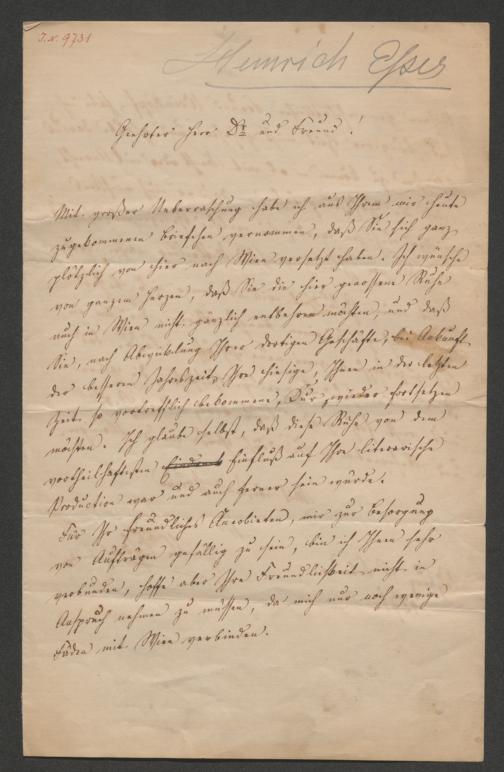 J.N. 9731
Heinrich Esser
Geehrter Herr Dr und Freund!
Mit großer Ueberraschung habe ich aus Ihrem mir heute
zugekommenen Briefchen vernommen, daß Sie sich ganz
plötzlich von hier nach Wien versetzt haben. Ich wünsche
von ganzem Herzen, daß Sie die hier genossene Ruhe
auch in Wien nicht gänzlich entbehren möchten, und daß
Sie, nach Abwicklung Ihrer dortigen Geschäfte, bei Ankunft
der besseren Jahreszeit, Ihre hiesige, Ihnen in der letzten
Zeit so vortrefflich bekommene, Cur, wieder fortsetzen
möchten. Ich glaube selbst, daß diese Ruhe von dem
vortheilhaftesten Einfluß auf Ihre literarische
Production war und auch ferner sein würde.
Für Ihr freundliches Anerbieten, mir zur Besorgung
von Aufträgen gefällig zu sein, bin ich Ihnen sehr
verbunden, hoffe aber Ihre Freundlichkeit nicht in
Anspruch nehmen zu müssen, da mich nur noch wenige
Fäden mit Wien verbinden.